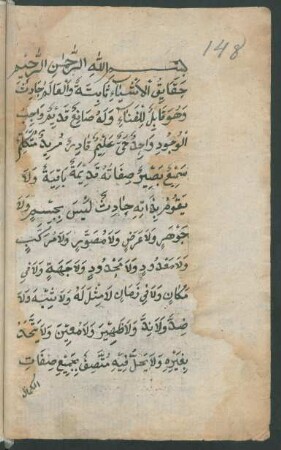 148
بسم الله الرحمن الرحيم
حقايق الاشياء ثابتة والعالم حادث
وهو قابل للفناء وله صانع قديم واجب
الوجود واحد حي عليم قادر مريد متكلم
سميع بصير صفاته قديمة باقية ولا
يقوم بذاته حادث ليس بجسم ولا
جوهر ولا عرض ولا مصور ولا مركب
ولا معدود ولا محدود ولا جهة ولا في
مكان ولا في زمان لا مثل له ولا شبيه ولا
ضد ولا ند ولا ظهير ولا معين ولا يتحد
بغيره ولا يحل فيه متصف بجميع صفات
الكمال